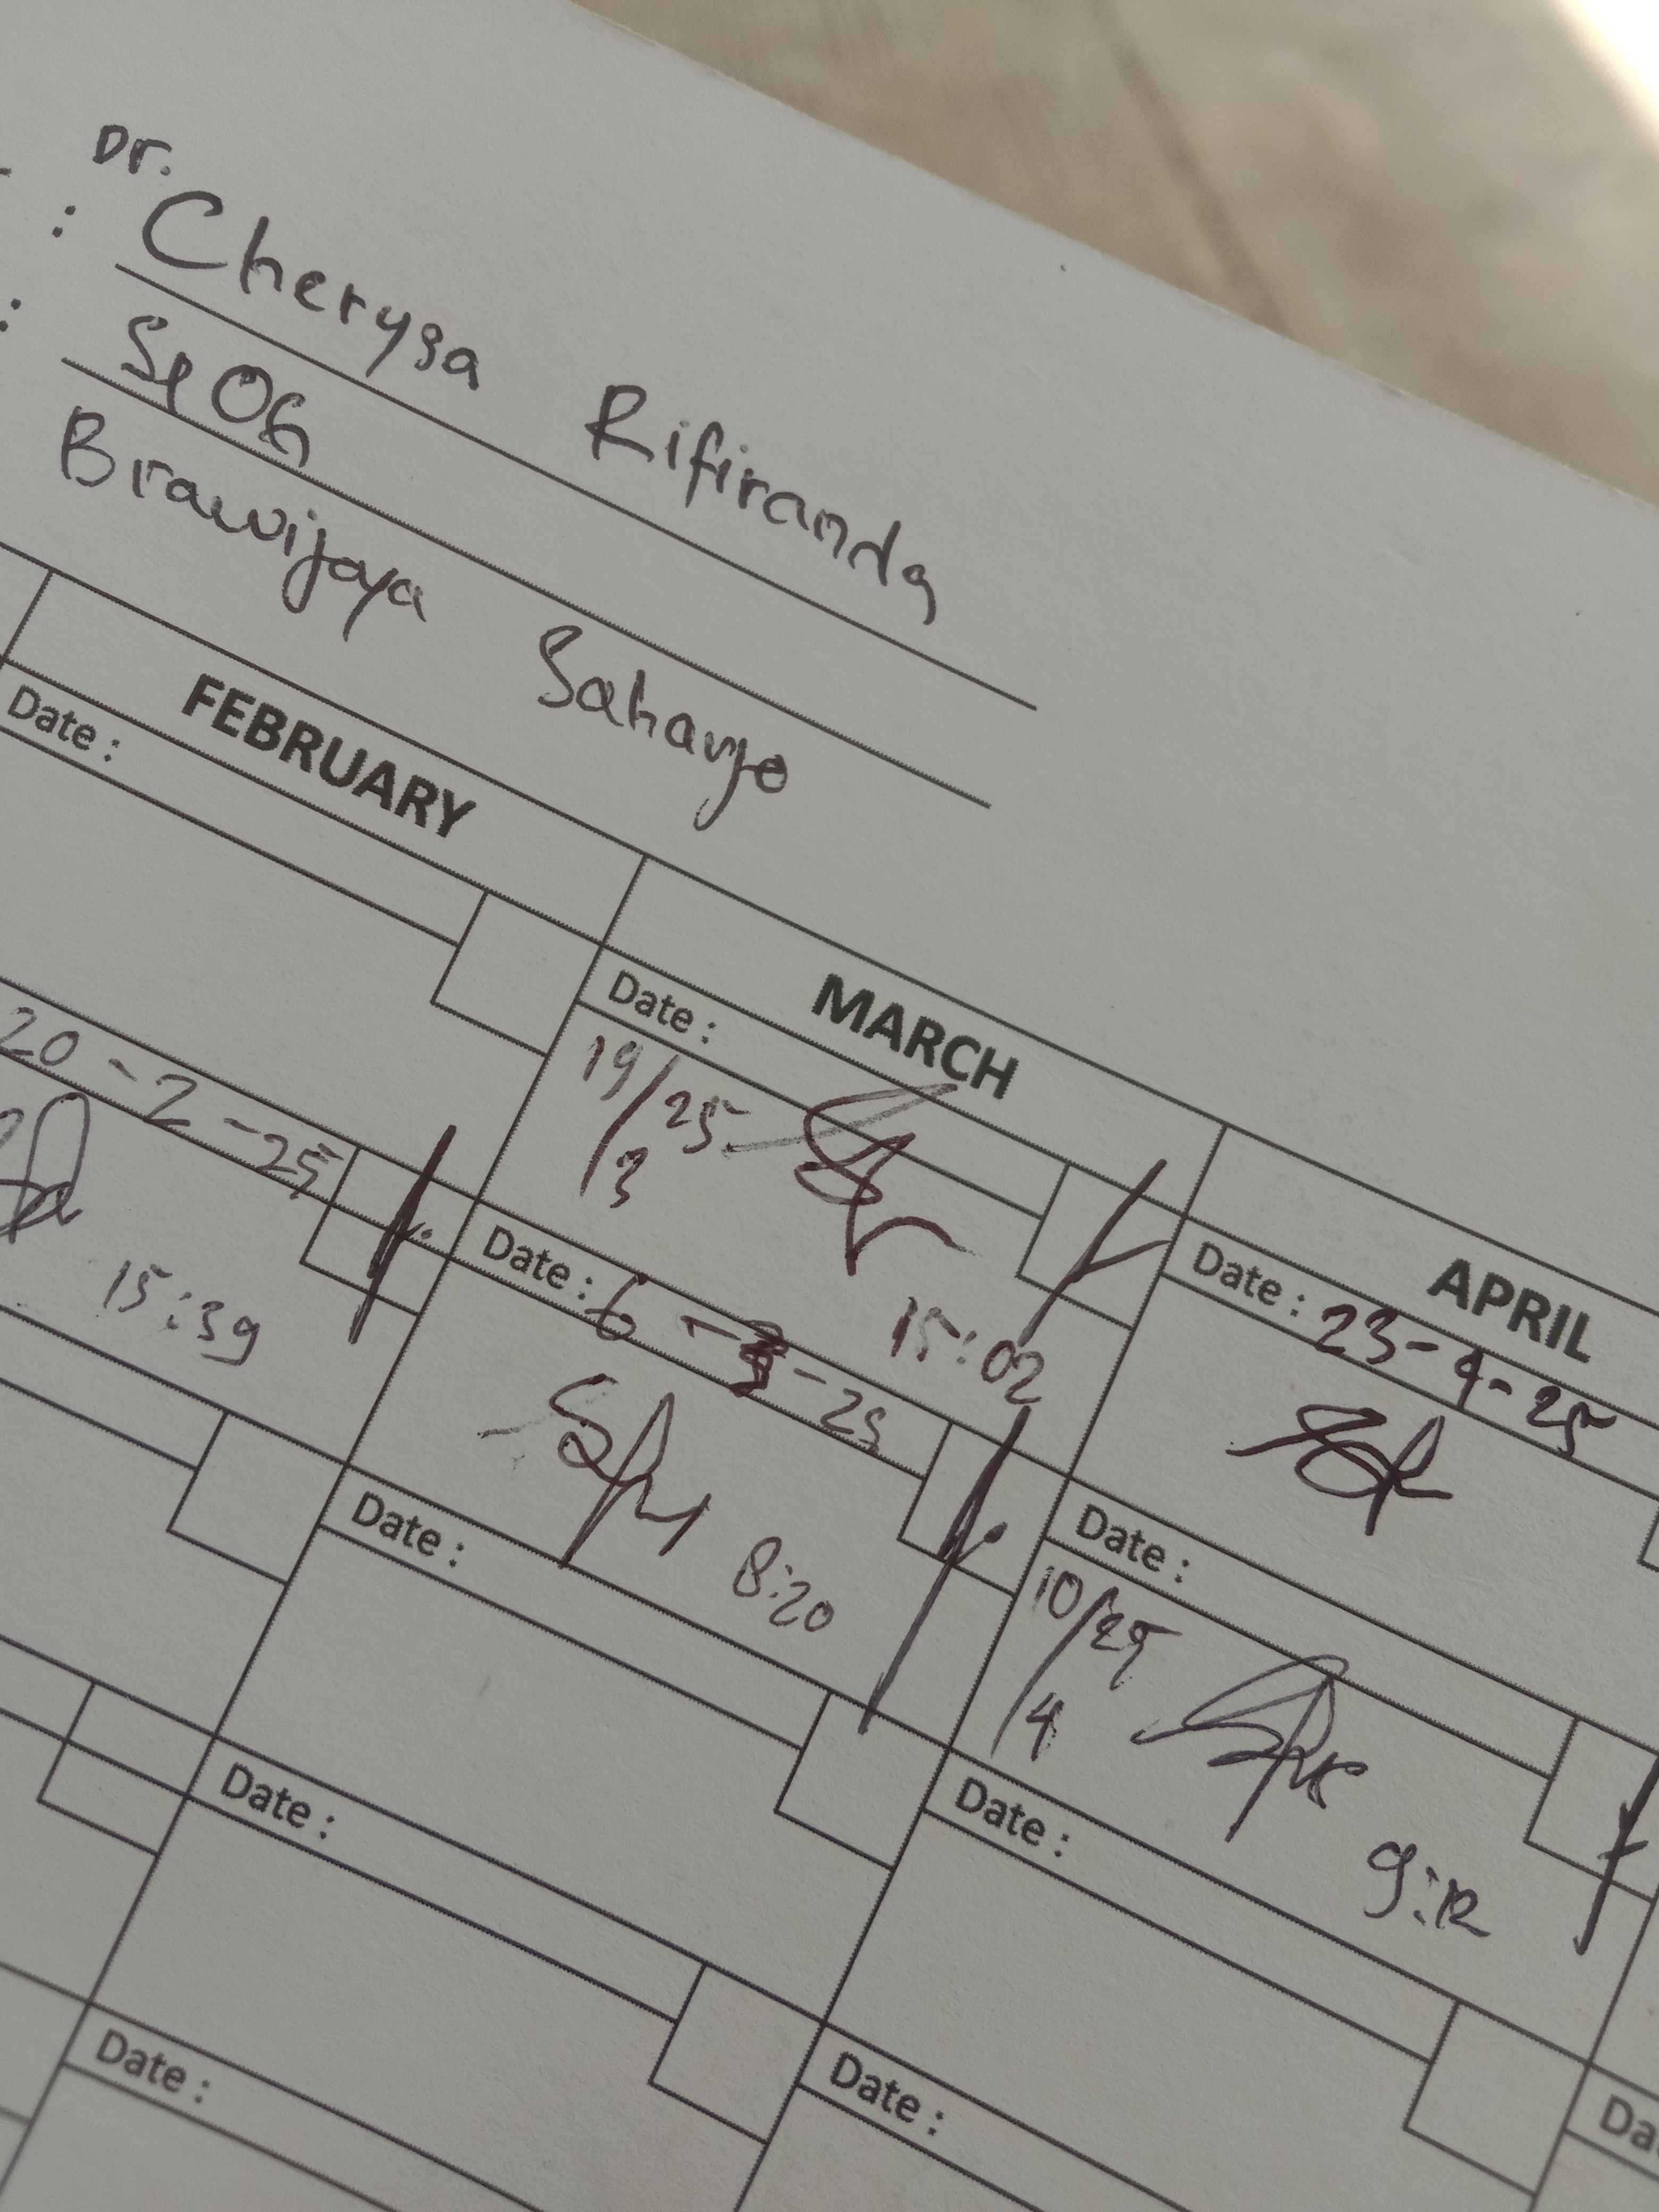 Dr.
: Cherysa Rifiranda
: SpOG
Brawijaya Saharjo
FEBRUARY
MARCH
APRIL
Date :
Date :
19/25
3
15:02
Date : 23-4-25
20-2-25
15:39
Date : 6 - 3 - 25
8:20
Date :
10/25
4
9:12
Date :
Date :
Date :
Date :
Date :
Da